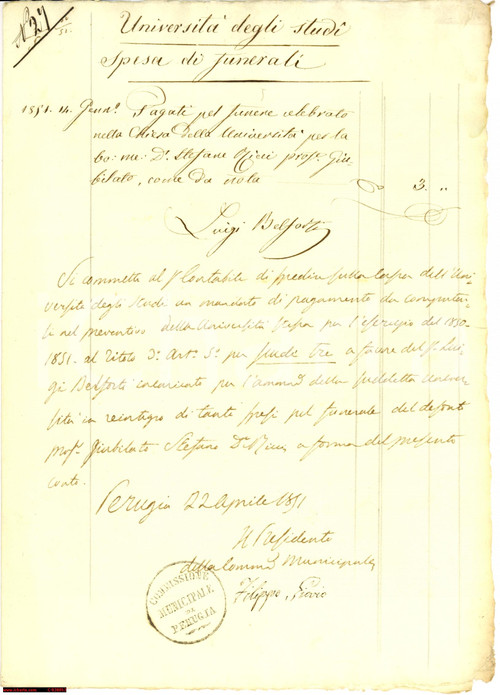 N° 27
51.
Università degli studi
Spesa di funerali
1851. 14. Genn° Pagati pel funere celebrato
nella Chiesa della Università per la
bo: me: Dr. Stefano prof.e Giu-
bilato, come da nota 3. "
Luigi Belforti
Si commetta al S. Contabile di spedire sulla Cassa dell'Uni-
versità degli Studi un mandato di pagamento da computar-
si nel preventivo della Università stessa per l'esercizio del 1850-
1851. al Titolo 3° Art. 5° per scudi tre a favore del S. Lui-
gi Belforti incaricato per l'ammne della suddetta Univer-
sità in reintegro di tanti spesi pel funerale del defonto
prof.e Giubilato Stefano Dr. a forma del presente
conto.
Perugia 22 Aprile 1851
Il Presidente
della Commne Municipale
Filippo
COMMISSIONE
MUNICIPALE
DI
PERUGIA